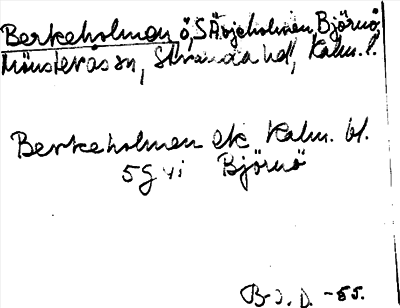 Berkeholmen ö, S Äspeholmen, Björnö,
Mönsterås sn, Stranda hd, Kalm. l.
Berkeholmen ek Kalm. bl.
5G vi Björnö
B-J. D. -55.